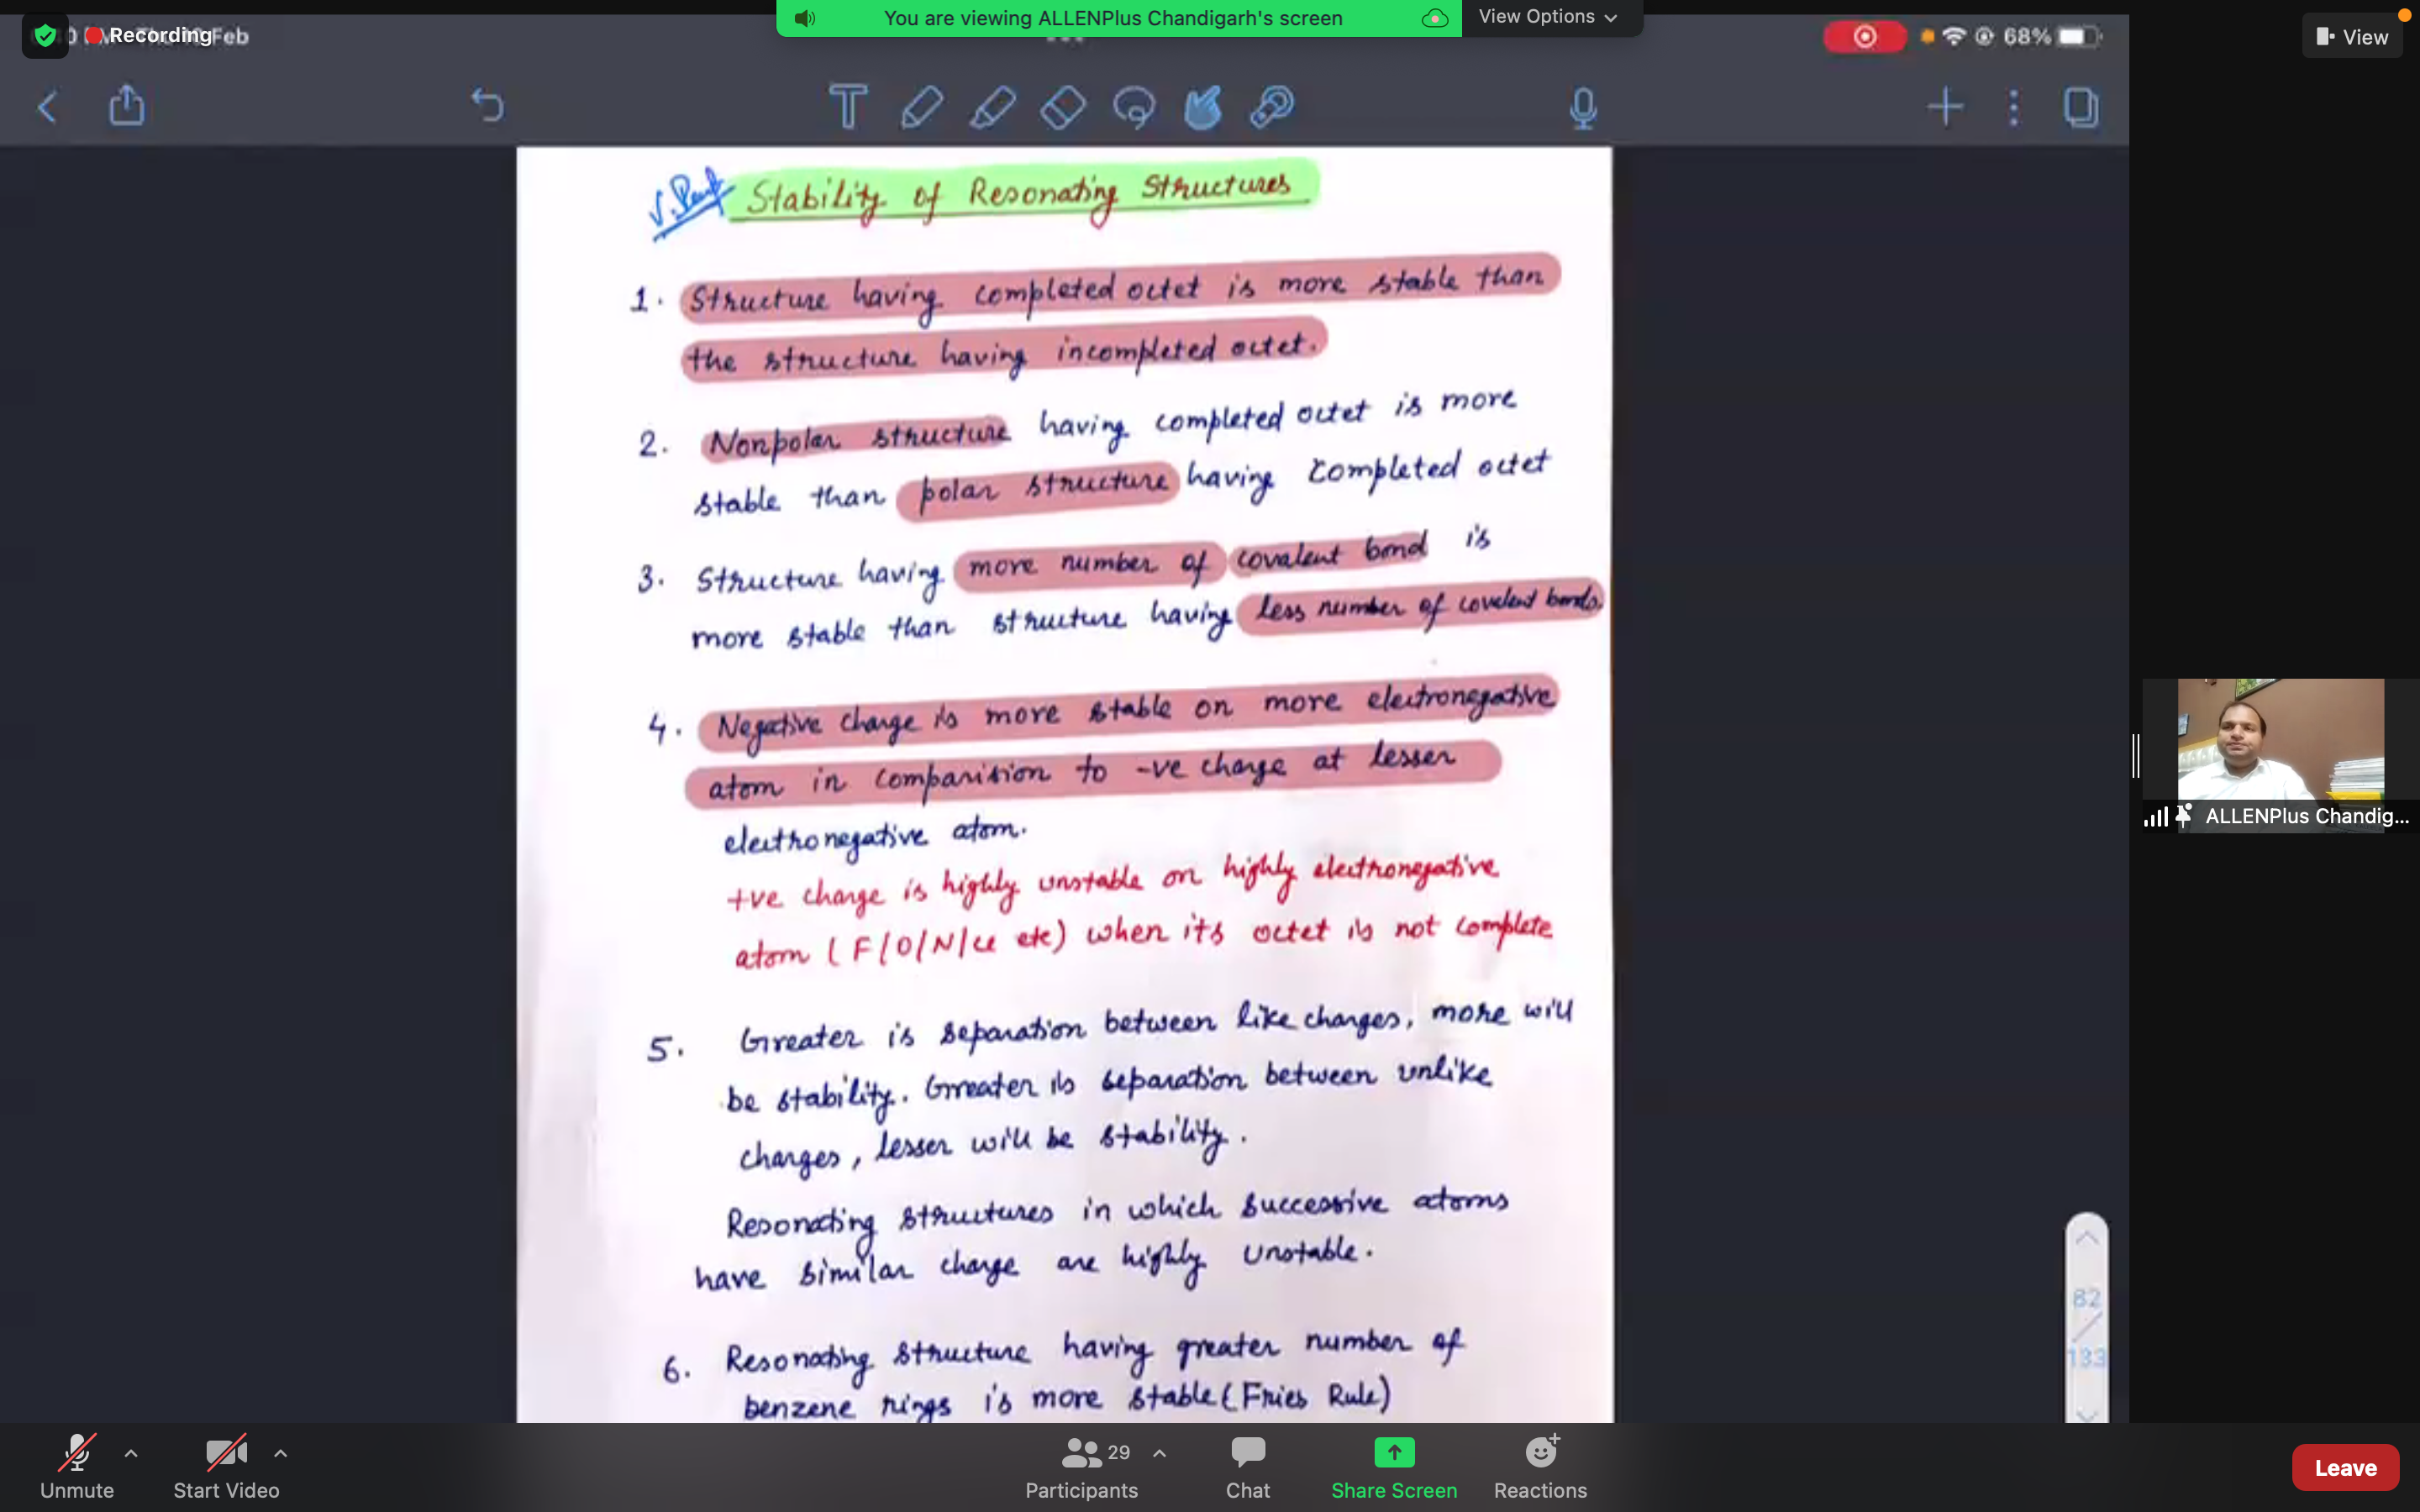 You are viewing ALLENPlus Chandigarh's screen
View Options
Recording
Feb
68%
View
Stability of Resonating Structures
1. Structure having completed octet is more stable than
the structure having incompleted octet.
2. Nonpolar structure having completed octet is more
stable than polar structure having completed octet
3. Structure having more number of covalent bond is
more stable than structure having less number of covalent bonds.
4. Negative charge is more stable on more electronegative
atom in comparision to -ve charge at lesser
electronegative atom.
+ve charge is highly unstable on highly electronegative
atom ( F/O/N/Cl etc) when its octet is not complete
5. Greater is separation between like charges, more will
be stability. Greater is separation between unlike
charges, lesser will be stability.
Resonating structures in which successive atoms
have similar charge are highly unstable.
6. Resonating structure having greater number of
benzene rings is more stable (Fries Rule)
82
133
ALLENPlus Chandig...
Unmute
Start Video
29
Participants
Chat
Share Screen
Reactions
Leave